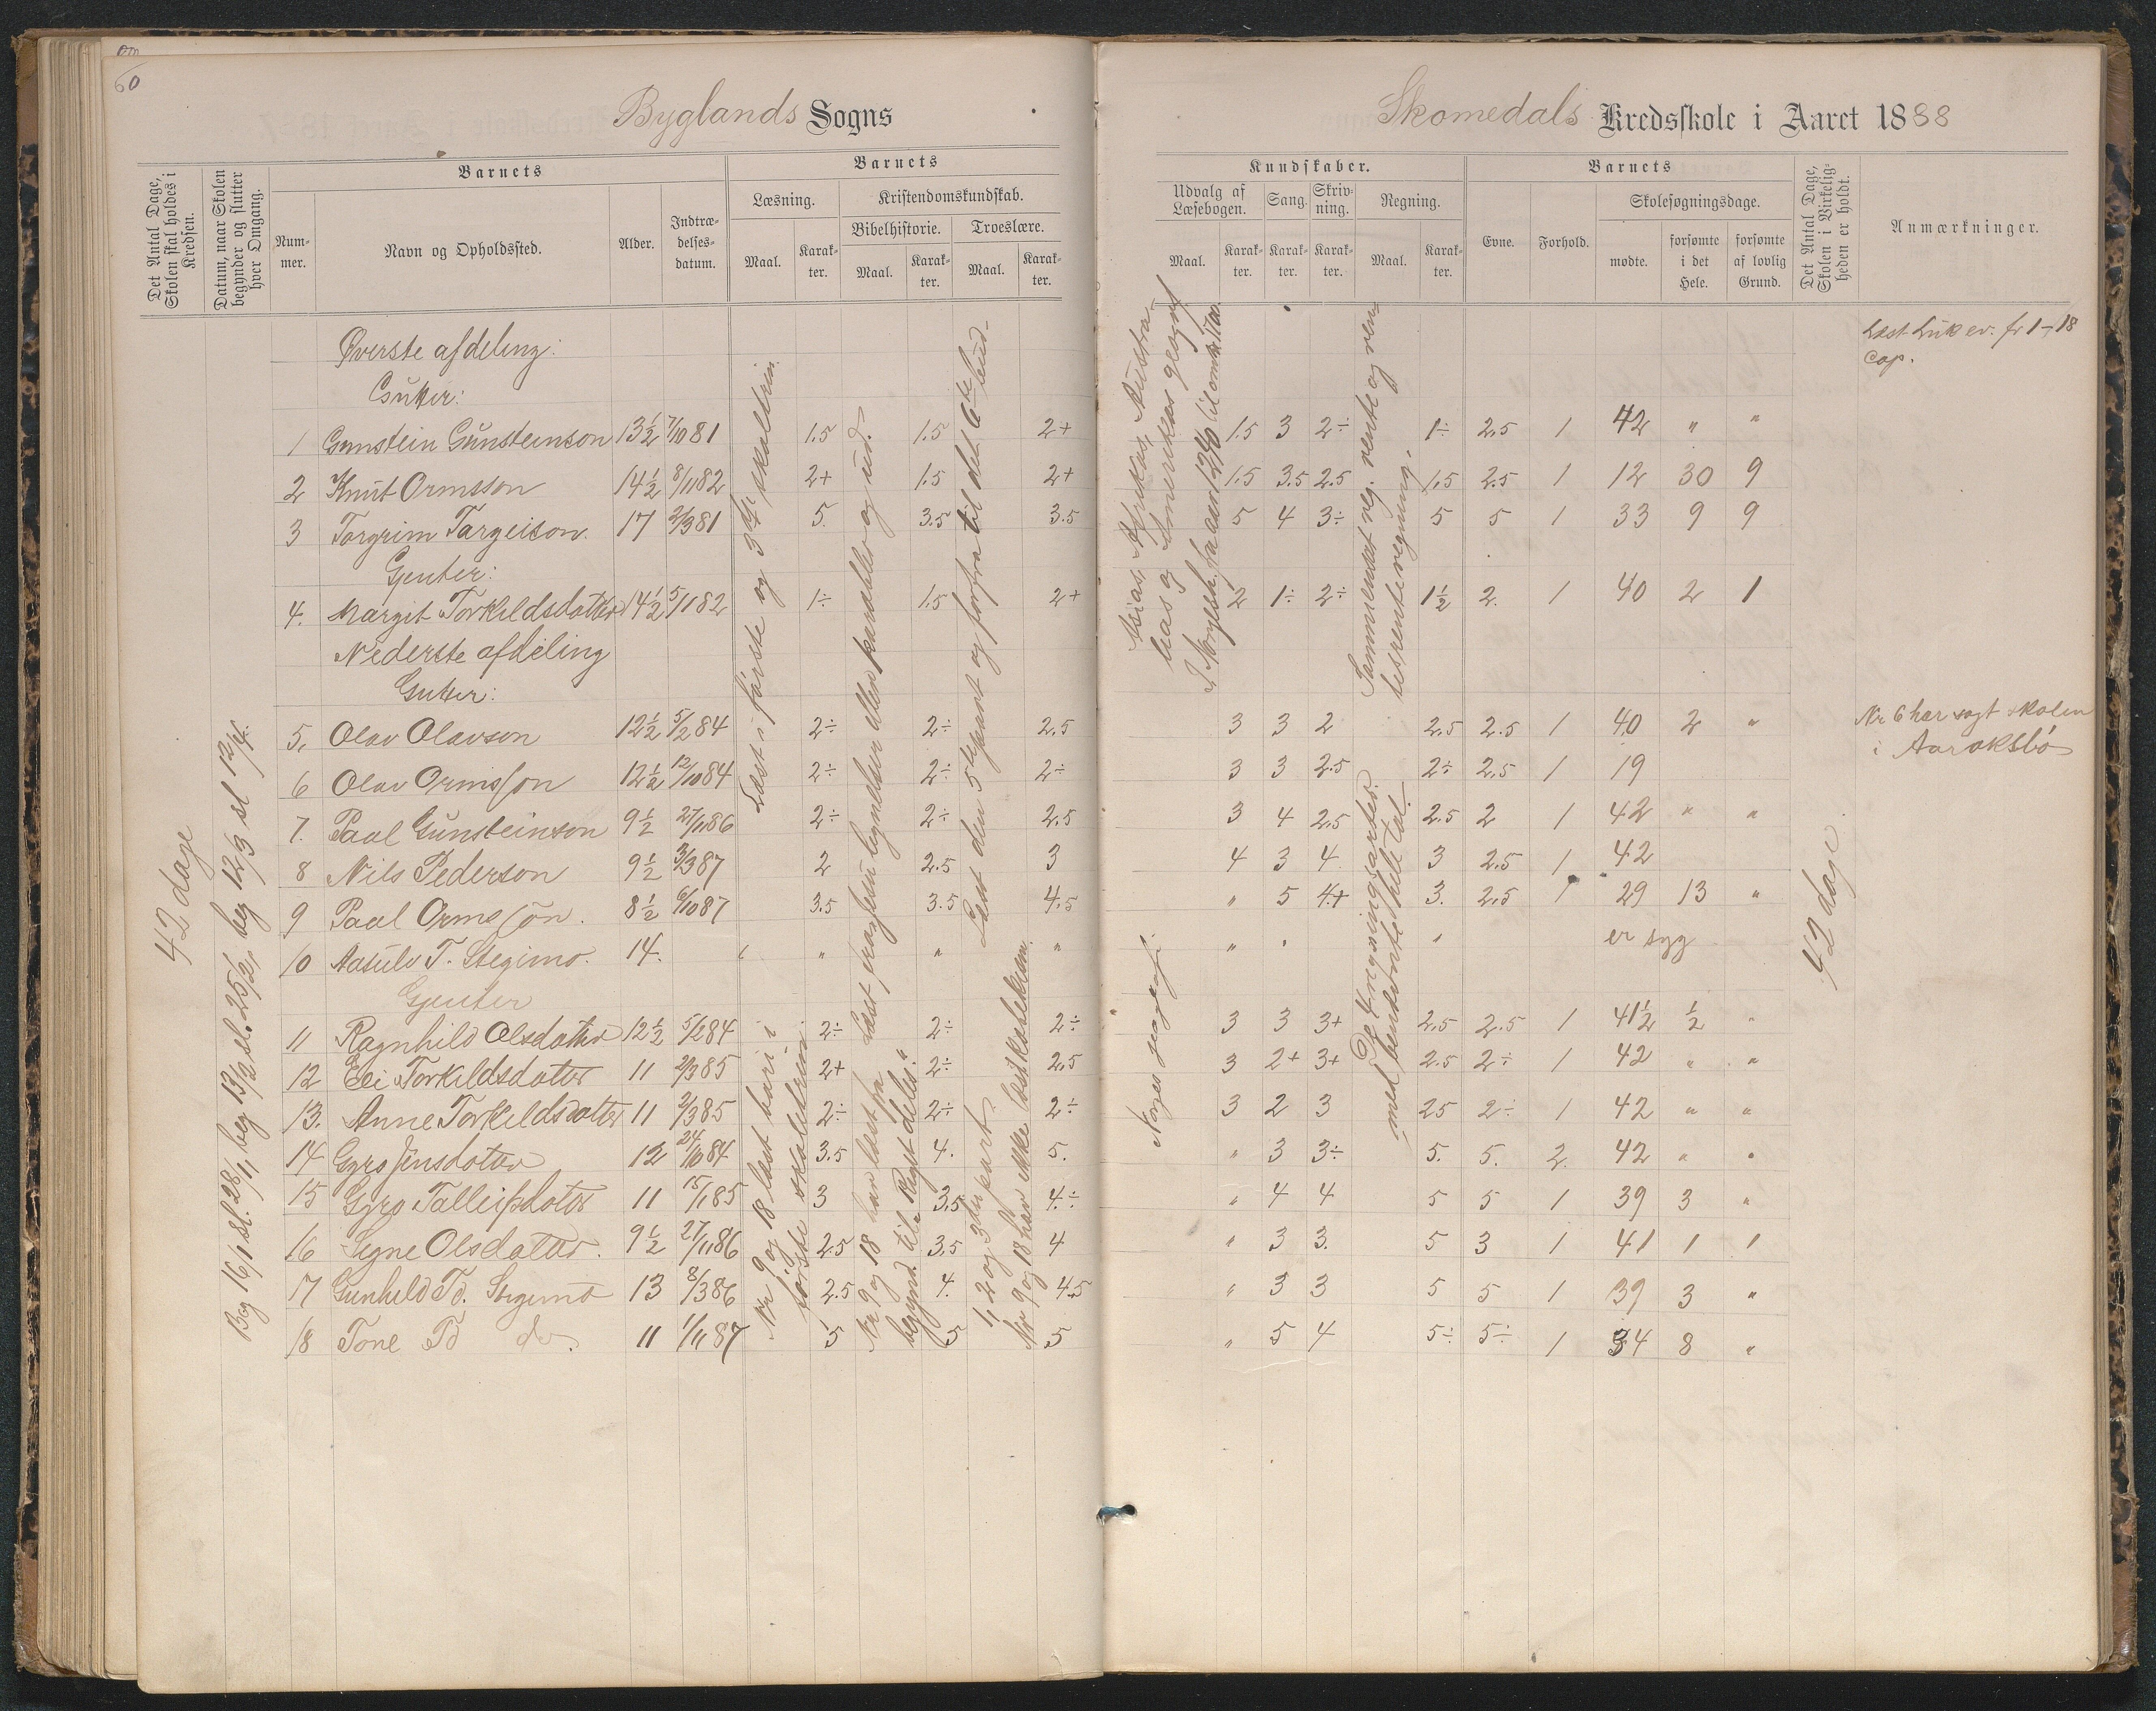 60
Byglands Sogns
Skomedals Kredsskole i Aaret 1888
Det Antal Dage, Skolen skal holdes i Kredsen.
Datum, naar Skolen begynder og slutter hver Omgang.
Barnets
Nummer.
Navn og Opholdssted.
Alder.
Indtrædelsesdatum.
Barnets
Læsning.
Maal.
Karakter.
Kristendomskundskab.
Bibelhistorie.
Maal.
Karakter.
Troeslære.
Maal.
Karakter.
Kundskaber.
Udvalg af Læsebogen.
Maal.
Karakter.
Sang.
Karakter.
Skrivning.
Karakter.
Regning.
Maal.
Karakter.
Barnets
Evne.
Forhold.
Skolesøgningsdage.
mødte.
forsømte i det Hele.
forsømte af lovlig Grund.
Det Antal Dage, Skolen i Virkeligheden er holdt.
Anmærkninger.
42 dage
Beg 16/1 sl. 28/1, beg 13/2 sl. 25/2, beg 12/3 sl 12/4.
Øverste afdeling:
Gutter:
1 Gunstein Gunsteinson 13½ 7/10 81 1.5 1.5 2+ 1.5 3 2÷ 1÷ 2.5 1 42 " "
2 Knut Ormsson 14½ 8/11 82 2+ 1.5 2+ 1.5 3.5 2.5 1.5 2.5 1 12 30 9
3 Torgrim Targeison. 17 2/3 81 5. 3.5 3.5 5 4 3÷ 5 5 1 33 9 9
Gjenter:
4. Margit Torkildsdatter 14½ 5/1 82 1÷ 1.5 2+ 2 1÷ 2÷ 1½ 2. 1 40 2 1
Nederste afdeling
Gutter:
5. Olav Olavson 12½ 5/2 84 2÷ 2÷ 2.5 3 3 2 2.5 2.5 1 40 2 "
6 Olav Ormsson 12½ 12/10 84 2÷ 2÷ 2÷ 3 3 2.5 2÷ 2.5 1 19
7. Paal Gunsteinson 9½ 27/11 86 2÷ 2÷ 2.5 3 4 2.5 2.5 2 1 42 " "
8 Nils Pederson 9½ 3/3 87 2 2.5 3 4 3 4 3 2.5 1 42
9 Paal Ormsson. 8½ 6/10 87 3.5 3.5 4.5 " 5 4+ 3. 2.5 1 29 13 "
10 Aasulv T. Stegimo. 14. " " " " " " er syg
Gjenter
11 Ragnhild Olsdatter 12½ 5/2 84 2÷ 2÷ 2÷ 3 3 3+ 2.5 2.5 1 41½ ½ "
12 Eli Torkildsdatter 11 2/3 85 2+ 2÷ 2.5 3 2+ 3+ 2.5 2÷ 1 42 " "
13. Anne Torkildsdatter 11 2/3 85 2÷ 2÷ 2÷ 3 2 3 25 2÷ 1 42 " "
14 Gyro Jensdatter 12 24/10 84 3.5 4. 5. " 3 3÷ 5. 5. 2. 42 " "
15 Gyro Talleifsdatter 11 15/1 85 3 3.5 4÷ " 4 4 5 5 1 39 3 "
16 Signe Olsdatter. 9½ 27/11 86 2.5 3.5 4 " 3 3. 5 3 1 41 1 1
17 Gunhild Td. Stegimo 13 8/3 86 2.5 4. 4.5 " 3 3 5 5 1 39 3 "
18 Tone Td do. 11 1/11 87 5 5 5 " 5 4 5÷ 5÷ 1 34 8 "
Læst i første og 3die skoletrin.
Nr 9 og 18 læst bare i første skoletrin
Læst fra Jesu lignelser eller parabler og ud.
Nr 9 og 18 har læst fra begynd. til Riget deles.
Læst den 5te part og forfra til det 6te bud
1, 2 og 3die part.
Nr 9 og 18 har ikke læst katekism.
Asias, Afrikas, Australias og Amerikas geograf
I Norgesh. fra aar 1240 til omkr. 1700.
Norges geografi.
Sammensat reg. rente og rentesrenteregning.
De 4 regningsarter med benævnte hele tal.
42 dage
Læst Luk ev. fr 1-18 Cap.
Nr 6 har søgt skolen
i Aaraksbø